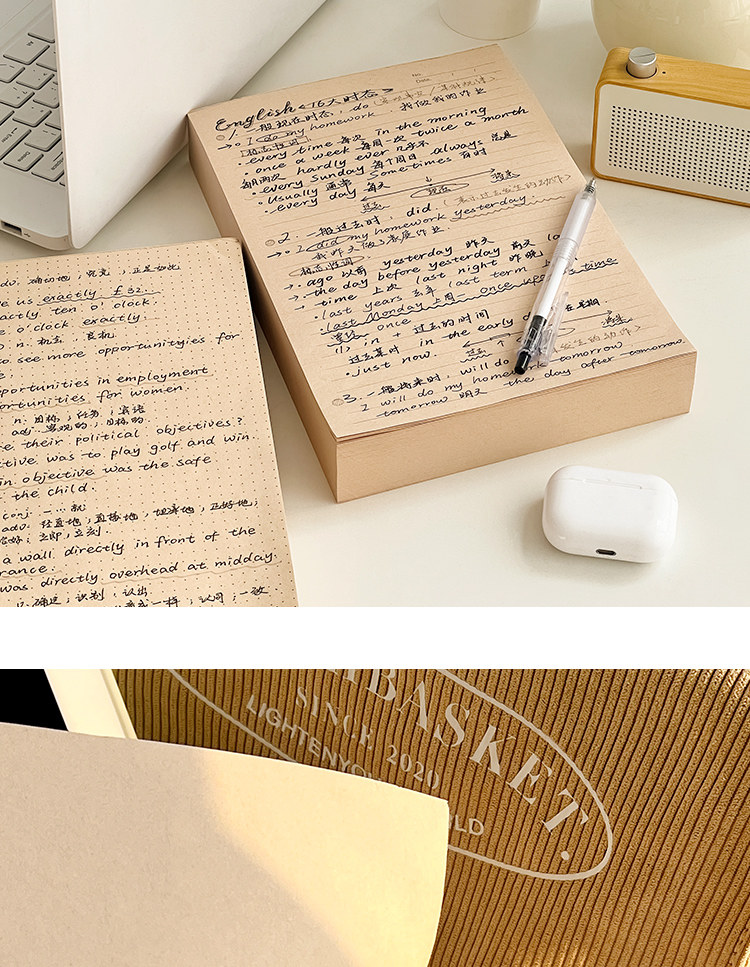 adv. 确切地，究竟；正是如此
us exactly £32.
exactly ten o'clock.
o'clock exactly.
n. 机会 良机
to see more opportunities for
opportunities in employment
opportunities for women.
n. 目标；任务；宾语
adj. 客观的；目标的
their political objectives?
was to play golf and win.
in objective was the safe
the child.
conj. 一…就
adv. 径直地，直接地，坦率地，正好地；
立即，立刻
a wall directly in front of the
was directly overhead at midday.
识别；认出
一样；认同；一致
No.
Date
English <16大时态>
1. 一般现在时态，do
→ I do my homework. 我做我的作业
every time 每次 in the morning
once a week 每周一次 twice a month
每月两次 hardly ever 几乎不
every Sunday 每个周日 always 总是
Usually 通常 Sometimes 有时
every day 每天
过去 现在 将来
2. 一般过去时，did.
→ I did my homework yesterday
我昨天做了家庭作业
ago 以前 yesterday 昨天
the day before yesterday 前天
time 上次 last night 昨晚
last years 去年 last term 上
last Monday 上周 once upon a time
once
(1) in + 过去的时间
过去某时 in the early 在早期
just now.
过去
3. 一般将来时，will do
I will do my homework tomorrow
tomorrow 明天 the day after tomorrow.
BASKET.
SINCE 2020
LIGHTEN